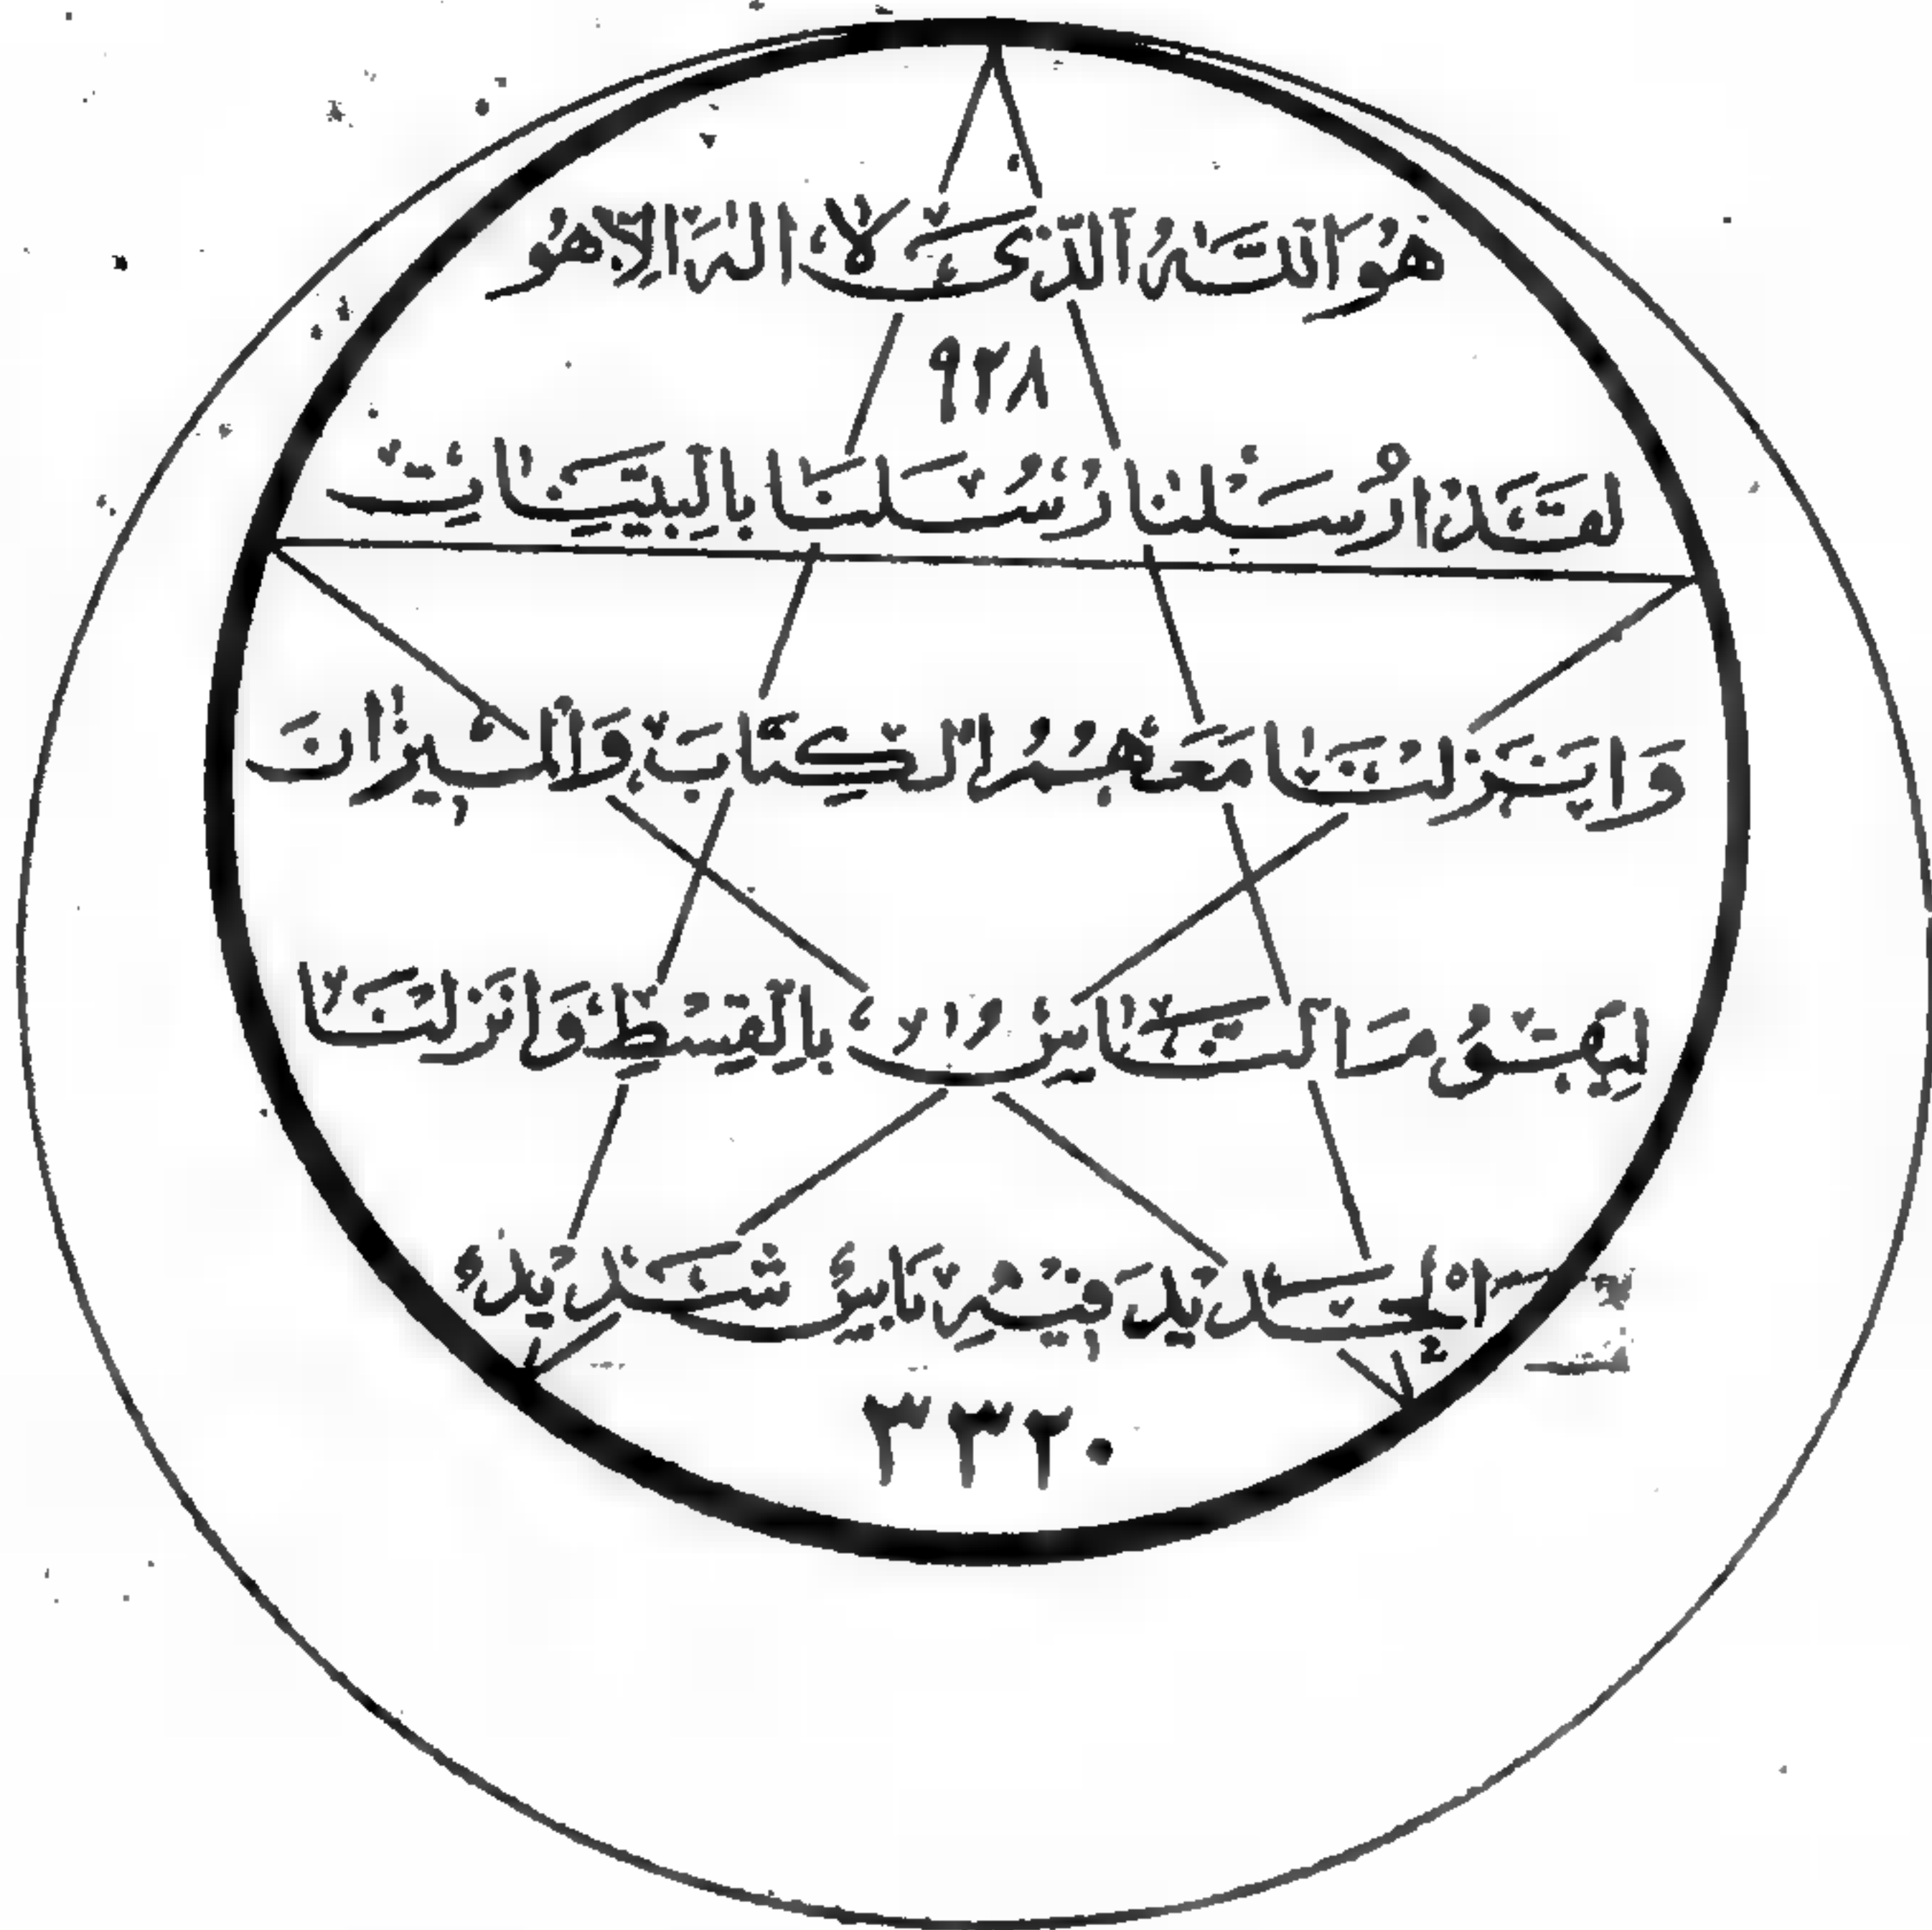 هُوَ اللّٰهُ الَّذِى لَا اِلٰهَ اِلَّا هُوَ
٩٢٨
لَقَدْ اَرْسَلْنَا رُسُلَنَا بِالْبَيِّنَاتِ
وَاَنْزَلْنَا مَعَهُمُ الْكِتَابَ وَالْمِيزَانَ
لِيَقُومَ النَّاسُ بِالْقِسْطِ وَاَنْزَلْنَا
الْحَدِيدَ فِيهِ بَأْسٌ شَدِيدٌ
٣٣٢٠